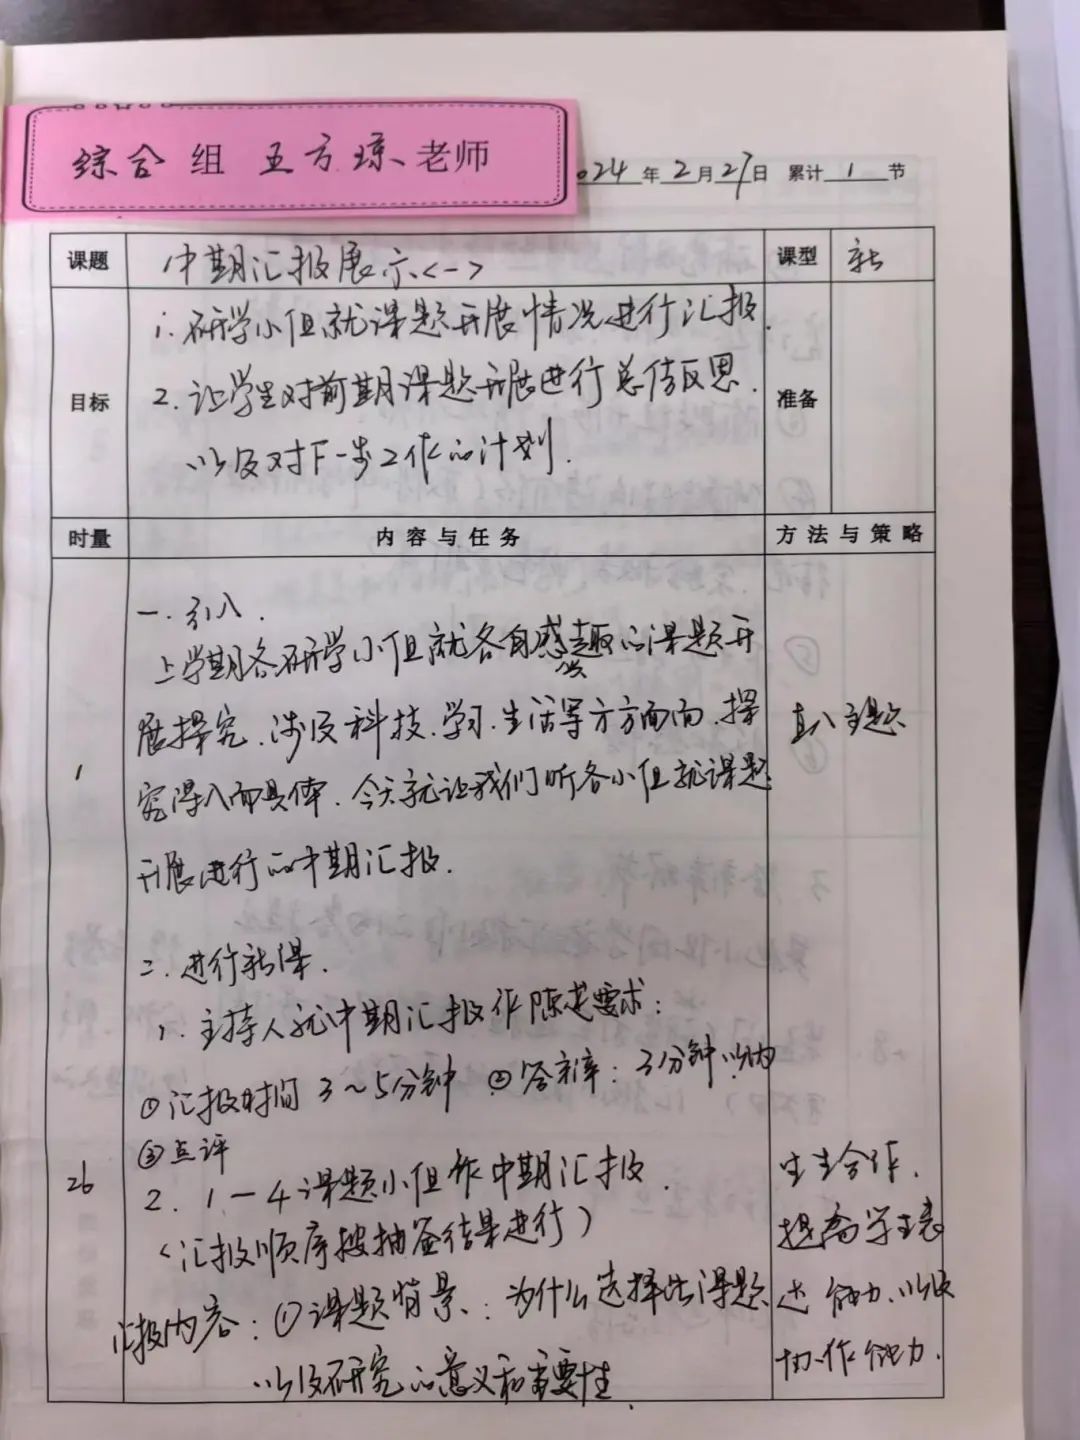 综合 组 王方琼 老师
2024 年 2 月 27 日 累计 1 节
课题 中期汇报展示<一> 课型 新
目标 1. 研学小组就课题开展情况进行汇报. 准备
2. 让学生对前期课题开展进行总结反思.
以及对下一步工作的计划.
时量 内容与任务 方法与策略
一. 引入.
上学期各研学小组就各自感兴趣的课题开
展探究.涉及科技.学习.生活等方方面面.探 直入主题
1 究深入而具体.今天就让我们听各小组就课题
开展进行的中期汇报.
二. 进行新课.
1. 主持人就中期汇报作陈述要求:
①汇报时间 3~5分钟 ②答辩: 3分钟以内
③点评
26 2. 1-4课题小组作中期汇报. 生生合作.
(汇报顺序按抽签结果进行) 提高学生表
汇报内容: ①课题背景: 为什么选择此课题 达能力.以及
以及研究的意义和重要性. 协作能力.